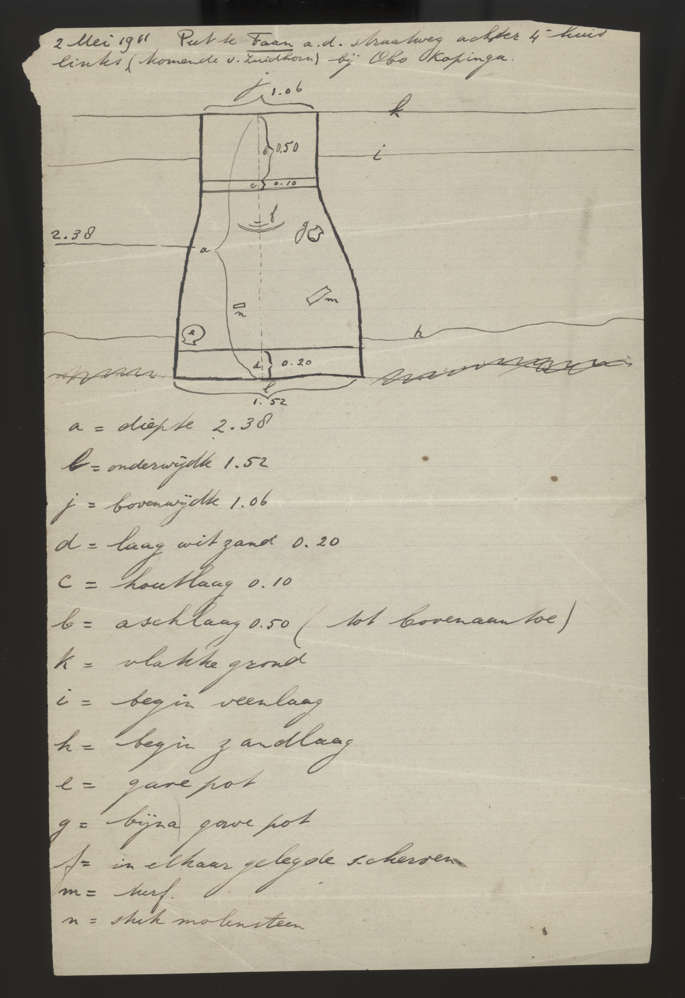 2 Mei 1911 Put te Faan a.d. straatweg achter 4e huis
links (komende v. Zuidhorn) bij Obo Kopinga.
j
1.06
k
b
0.50
i
c
0.10
f
g
2.38
a
m
n
e
h
d
0.20
l
1.52
a = diepte 2.38
l = onderwijdte 1.52
j = bovenwijdte 1.06
d = laag wit zand 0.20
c = houtlaag 0.10
b = aschlaag 0.50 ( tot bovenaan toe)
k = vlakke grond
i = begin veenlaag
h = begin zandlaag
e = gave pot
g = bijna gave pot
f = in elkaar gelegde scherven
m = turf.
n = stuk molensteen